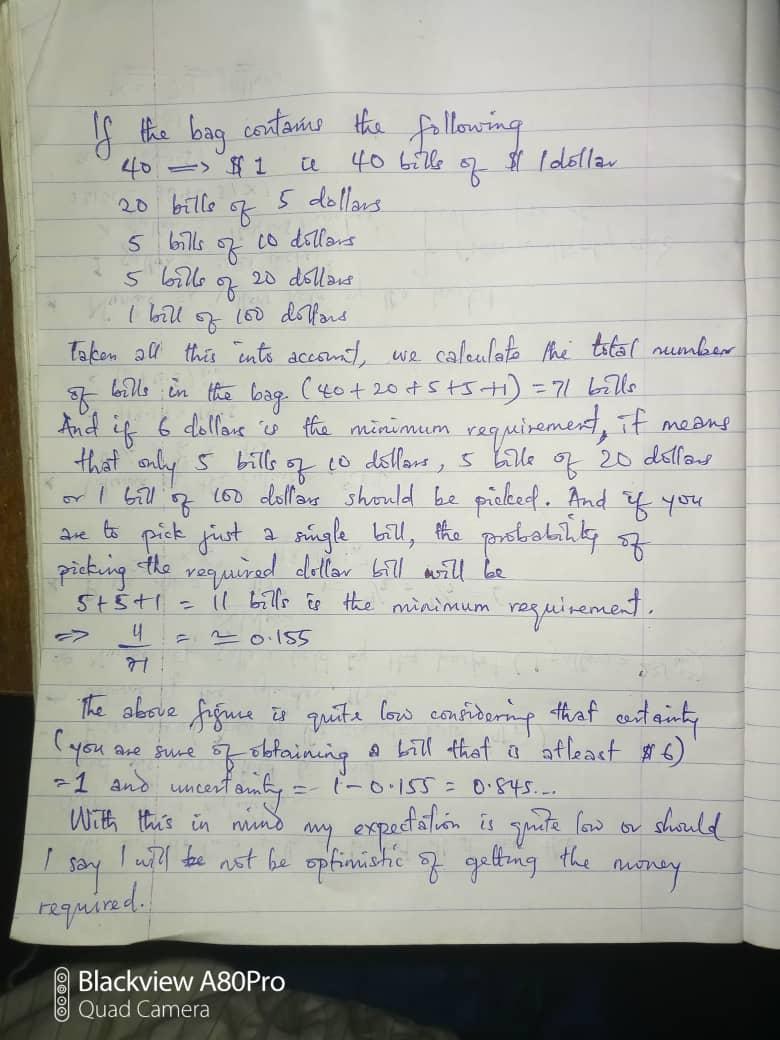 If the bag contains the following
40 => $ 1 ie 40 bills of $ 1 dollar
20 bills of 5 dollars
5 bills of 10 dollars
5 bills of 20 dollars
1 bill of 100 dollars
Taken all this into account, we calculate the total number
of bills in the bag. (40 + 20 + 5 + 5 + 1) = 71 bills
And if 6 dollars is the minimum requirement, it means
that only 5 bills of 10 dollars, 5 bills of 20 dollars
or 1 bill of 100 dollars should be picked. And if you
are to pick just a single bill, the probability of
picking the required dollar bill will be
5 + 5 + 1 = 11 bills is the minimum requirement.
=> 11/71 = ≃ 0.155
The above figure is quite low considering that certainty
(you are sure of obtaining a bill that is atleast $ 6)
= 1 and uncertainty = 1 - 0.155 = 0.845...
With this in mind my expectation is quite low or should
I say I will be not be optimistic of getting the money
required.
Blackview A80Pro
Quad Camera